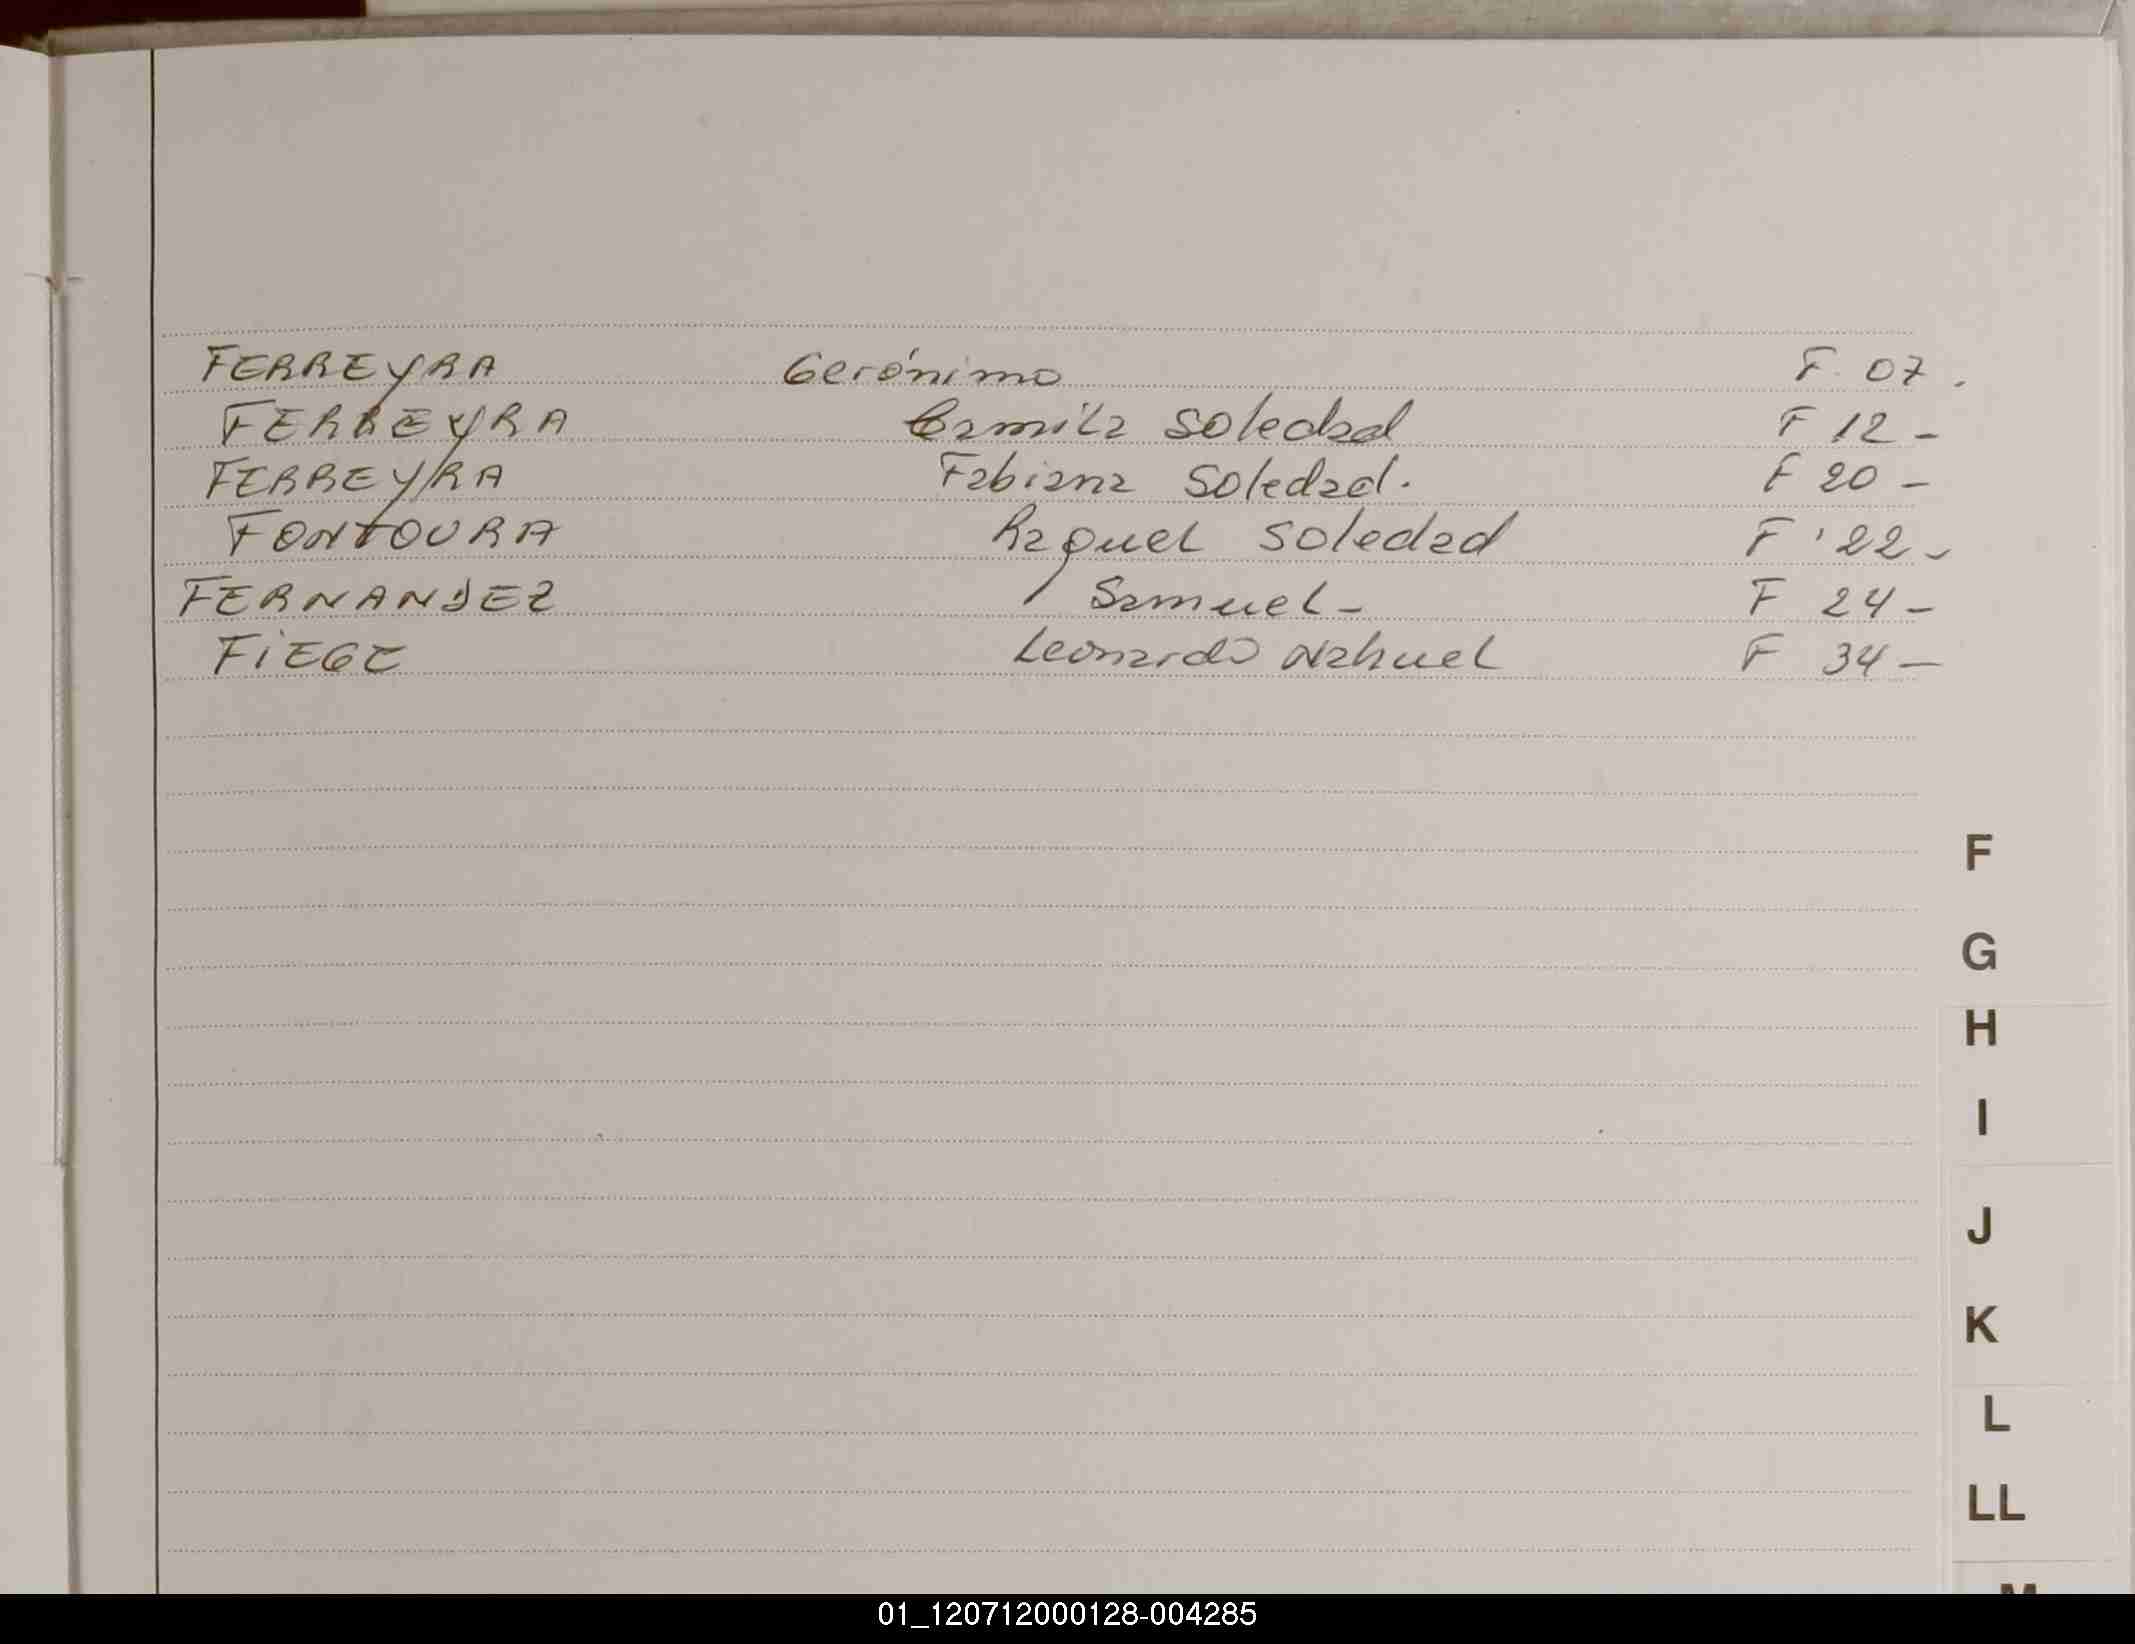 FERREYRA Gerónimo F. 07.
FERREYRA Camila Soledad F 12-
FERREYRA Fabiana Soledad. F 20-
FONTOURA Raquel Soledad F '22-
FERNANDEZ Samuel- F 24-
FIEGE Leonardo Nahuel F 34-
F
G
H
I
J
K
L
LL
M
01_120712000128-004285